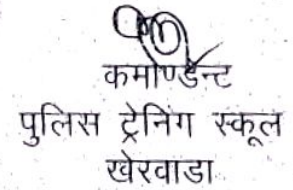 कमाण्डेन्ट
पुलिस ट्रेनिग स्कूल
खेरवाडा